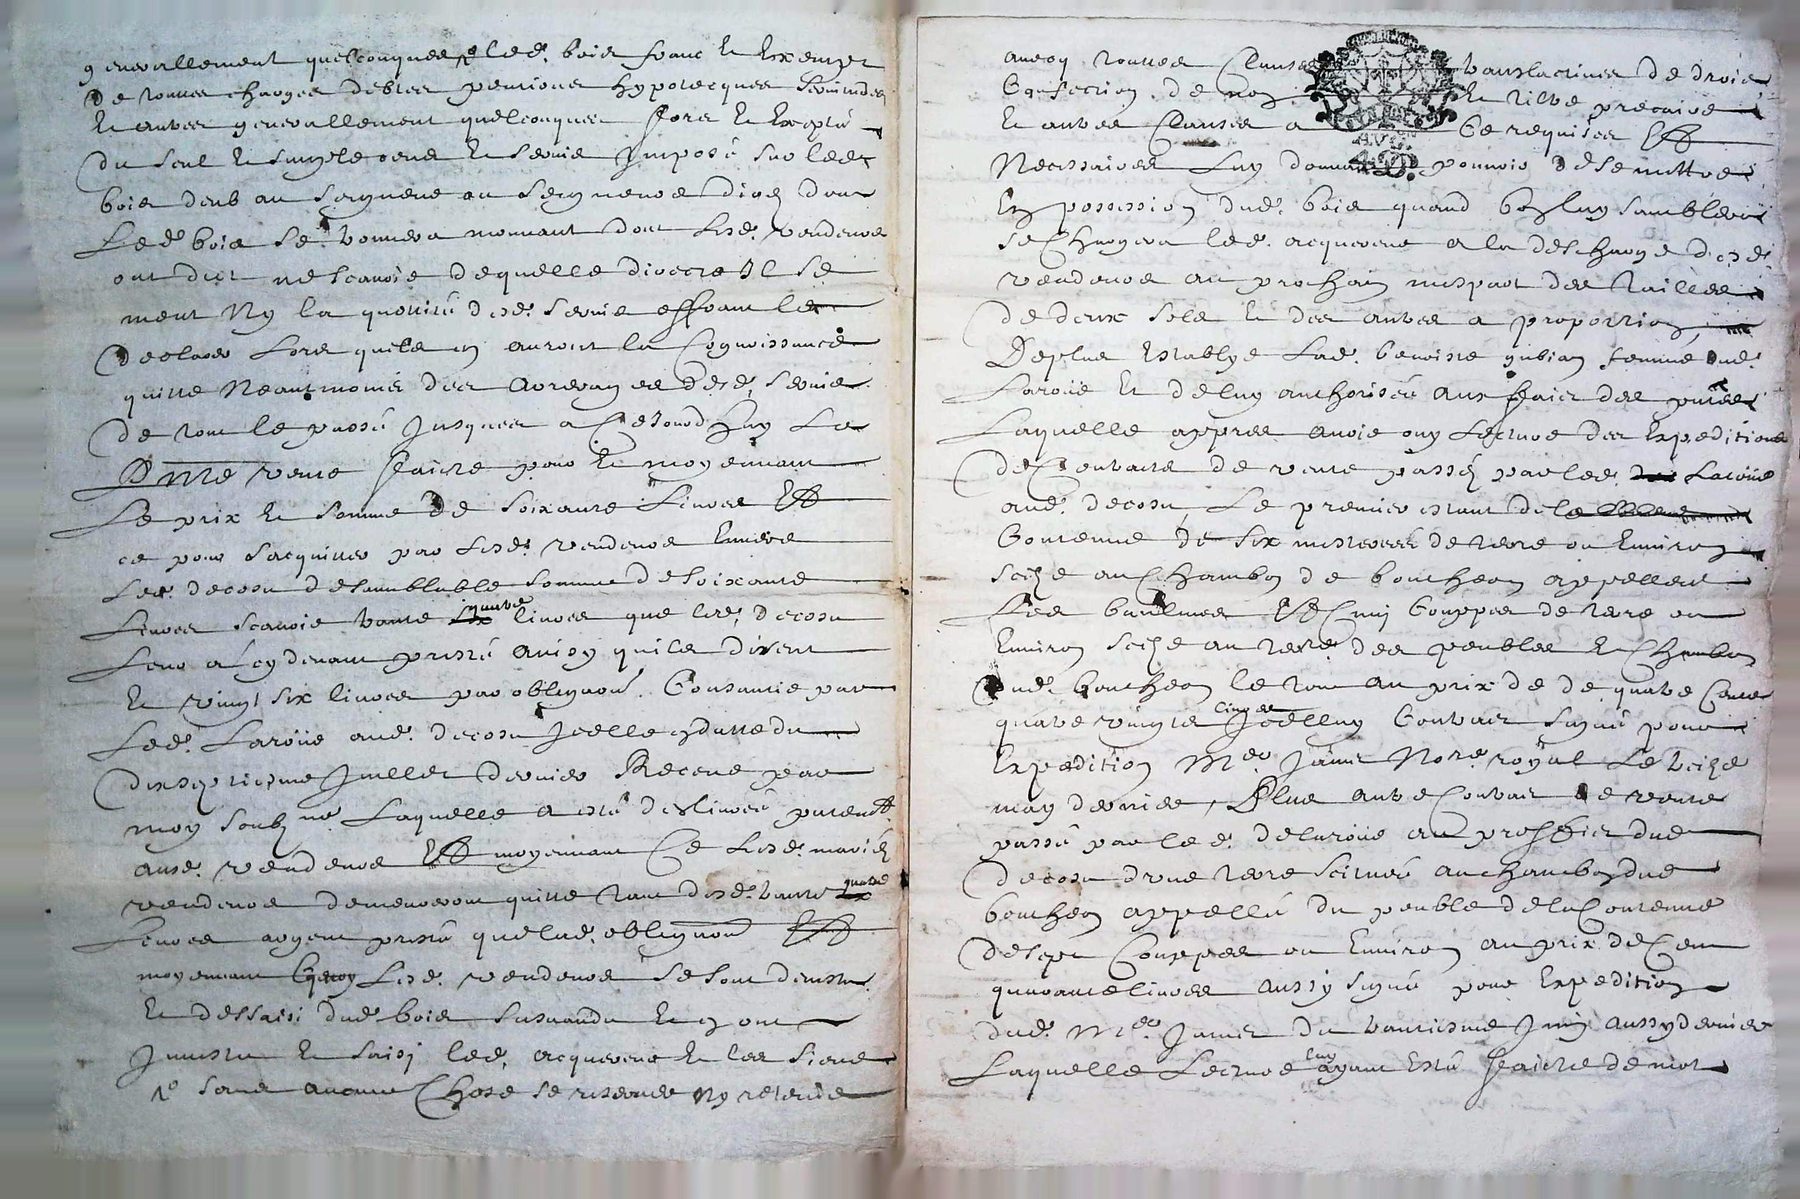 generallement quelconques et led. bois franc et exempt
de toutes charges debtes pensions hypotecques servitudes
et autres generallement quelconques fors et excepté
du seul et simple cens et servis imposé sur led.
bois deub au seigneur ou seigneurs dicy dont
led. bois se trouvera mouvant dont lesd. vendeurs
ont dict ne scavoir de quelle directe il se
meut ny la quotité desd. servis offrant le
declarer lors quils en auront la cognoissance
quitte neantmoins des arrerages desd. servis
de tout le passé jusques a ce jourdhuy La
vente faicte pour et moyennant
Le prix et somme de soixante livres
ce pour sacquitter par lesd. vendeurs envers
led. decosu de semblable somme de soixante
livres scavoir trante quatre livres que led. decosu
leur a cy devant presté ainsy quils disent
et vingt six livres par obligaon. consantie par
led. Laroüe aud. decosu icelle en datte du
dixseptiesme juillet dernier Receue par
moy soubz.ne Laquelle a esté deslivrée
ausd. vendeurs moyennant ce lesd. mariés
vendeurs demeureront quitte tant desd. trante quatre
livres argent presté que lad. obligaon
moyennant lesd. vendeurs se sont demistu
et dessaisi dud. bois susvandu et en ont
investu et saisi led. acquereur et les siens
sans aucune chose se reserver ny retenir
avecq toutes clauses translatives de droit
constition de et tiltre precaire
et autres clauses a ce requises
Necessaires Luy donnant pouvoir de se mettre
En possession dud. bois quand bon luy samblera
se chargera led. acquereur a la descharge desd.
vendeurs au prochain mespart des tailles
de deux sols et des autres a proportion
De plus establye Lad. benoiste gubian femme dud.
Laroüe et de luy authorisée aux fins des
Laquelle appres avoir ouy lecture des expeditions
de contracts de vente passés par led. Laroüe
aud. decosu, Le premier estant de
contenue de six mesterees de terre ou environ
scize au chambon de boucheon appellent
Les et cinq couppes de terre ou
environ scize au terre des peubles et chambon
dud. boucheon le tout au prix de de quatre cents
quatre vingts cinq livres icelluy contract signé pour
Expedition Me. Jamet Nore. royal Le treize
may dernier, Plus autre contract de vente
passé par led. delaroüe au proffict dud.
decosu d'une terre scituée au chambon dud.
boucheon appellé du peuble de la contenue
de sept couppes ou environ au prix de cent
quarante livres aussy signé pour Expedition
dud. Me. Jamet du trantiesme juin aussy dernier
Laquelle lecture luy ayant esté faicte de mot